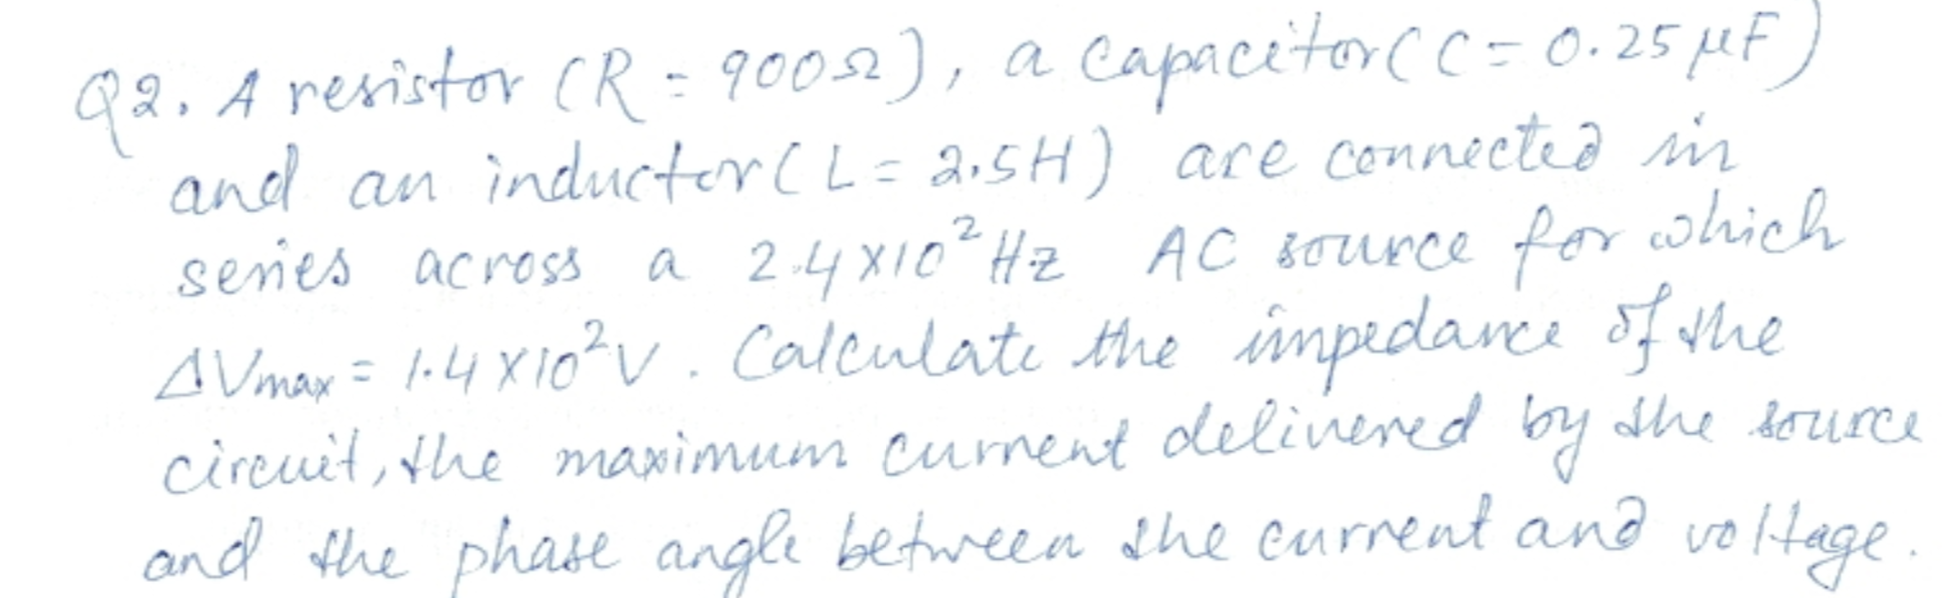 Q2. A resistor (R = 900Ω), a capacitor (C = 0.25 μF)
and an inductor (L = 2.5H) are connected in
series across a 2.4 X10² Hz AC source for which
ΔVmax = 1.4 X10² V. Calculate the impedance of the
circuit, the maximum current delivered by the source
and the phase angle between the current and voltage.